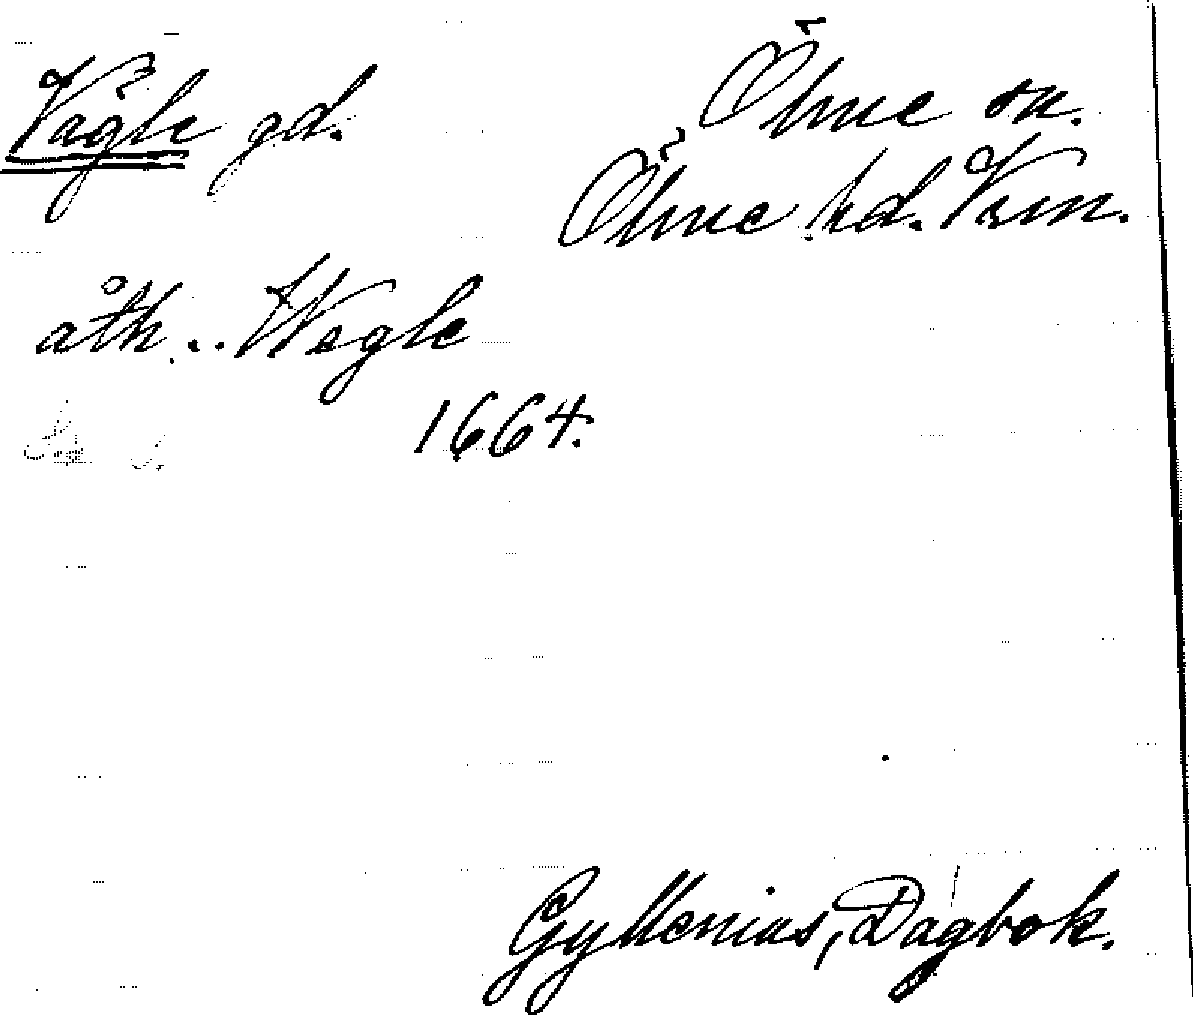 Vägle gd.
Ölme sn.
Ölme hd. Vrm.
åth... Wegle
1664.
Gyllenius, Dagbok.